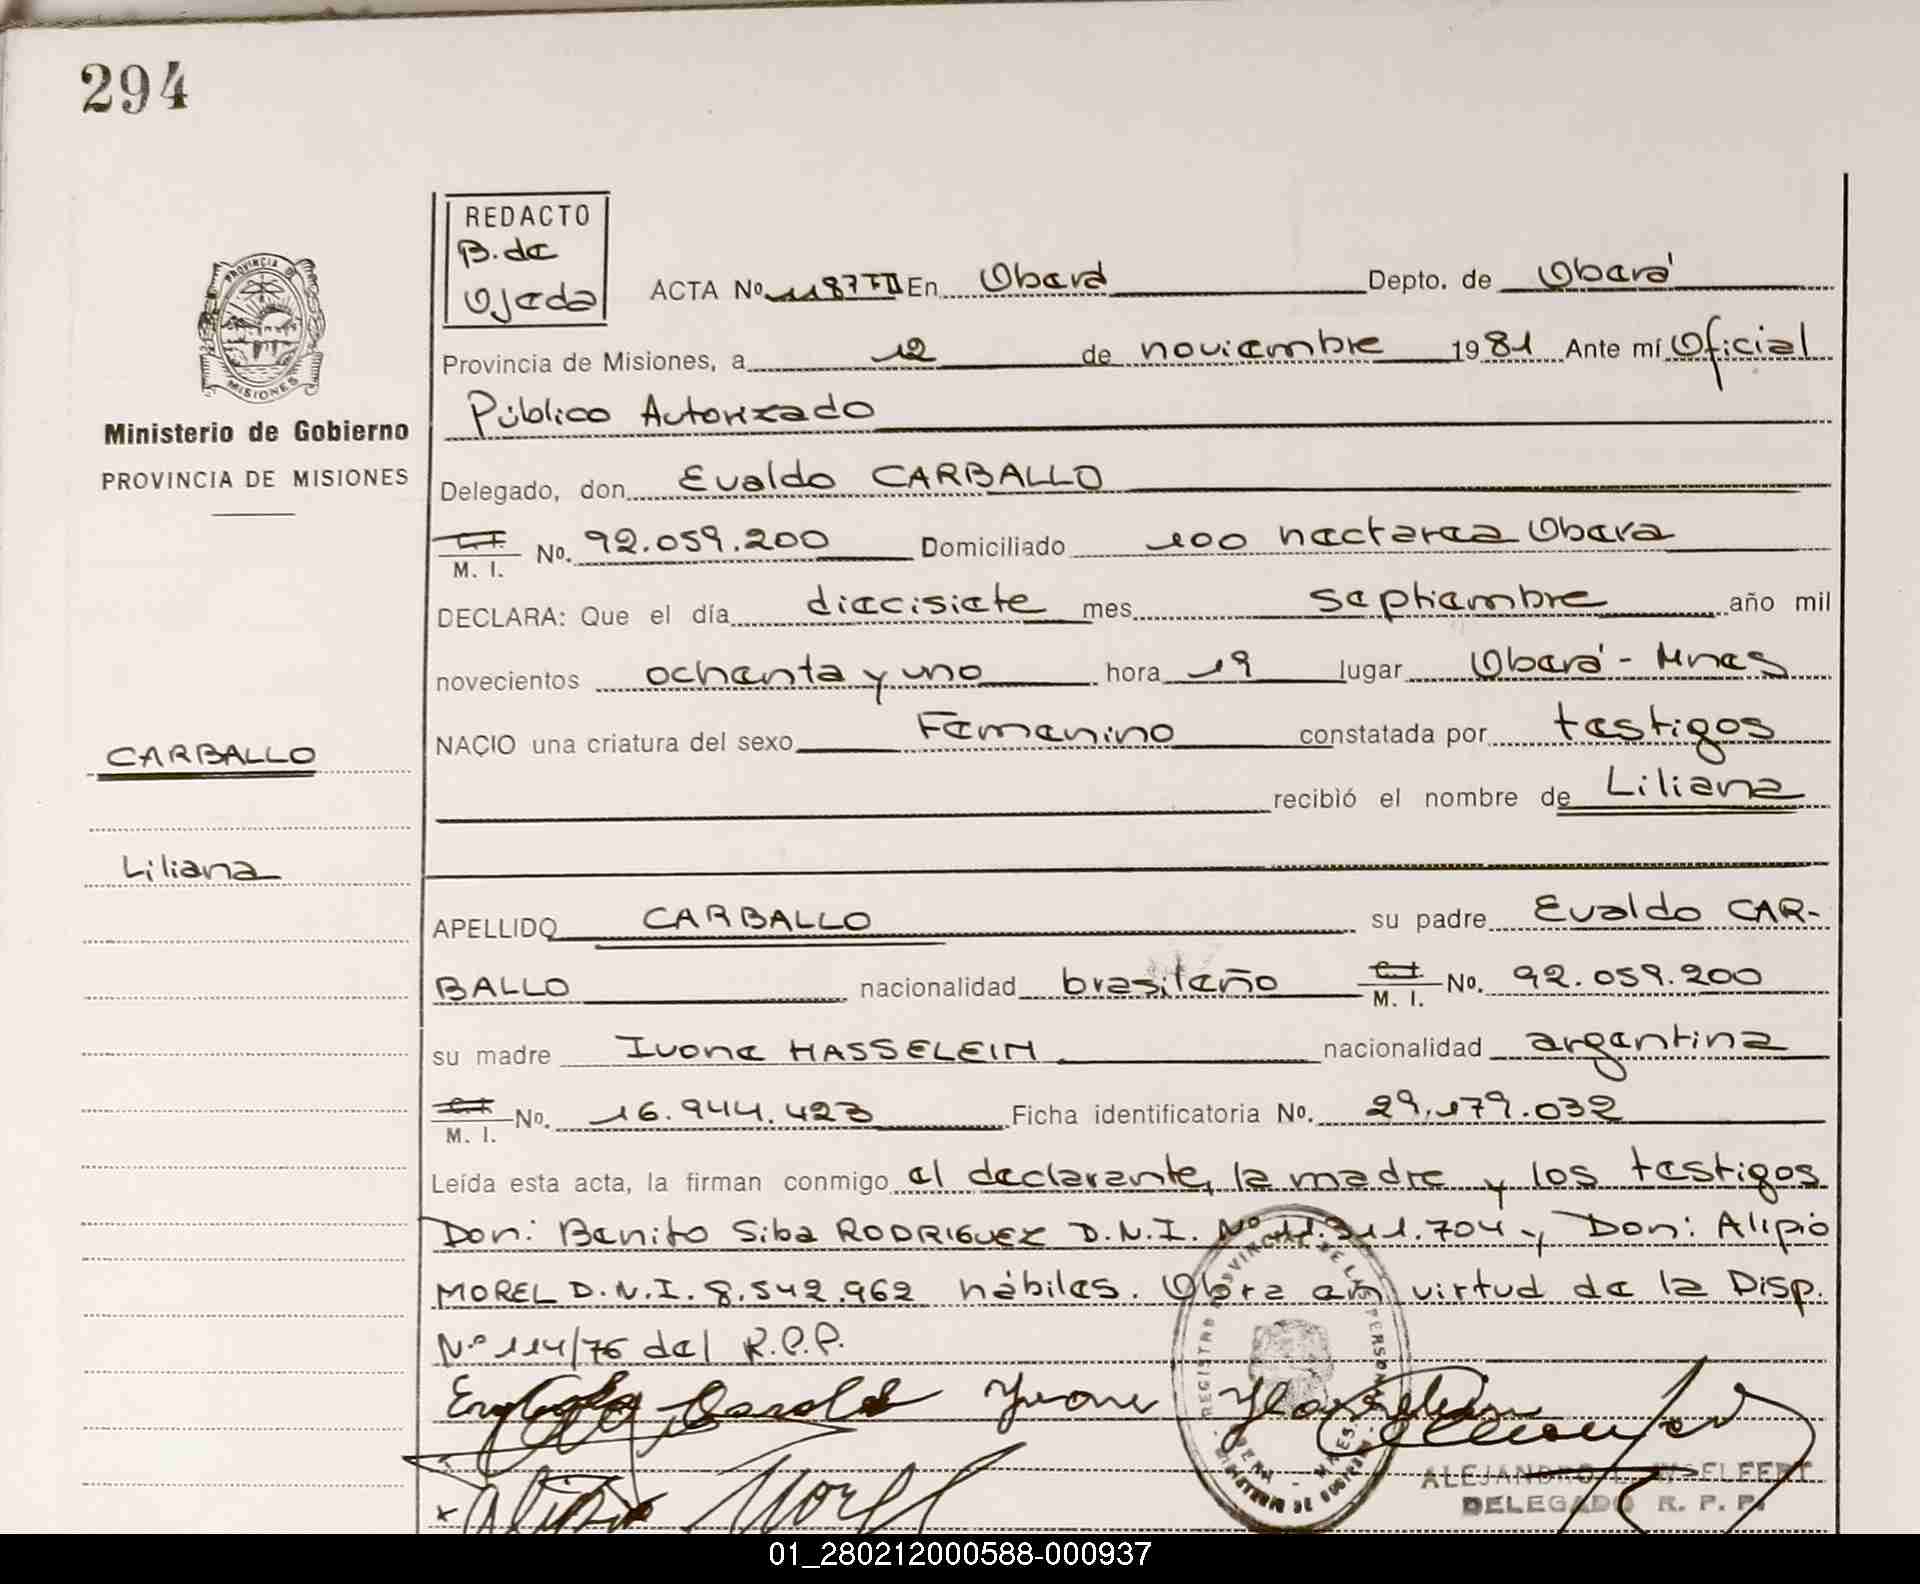 294
REDACTO
B. de
Ojeda
ACTA Nº 1187 TII En Oberá Depto. de Oberá
Provincia de Misiones, a 12 de noviembre 1981 Ante mí Oficial
Público Autorizado
PROVINCIA DE
MISIONES
Ministerio de Gobierno
PROVINCIA DE MISIONES
Delegado, don Evaldo CARBALLO
C.I.
M. I. Nº. 92.059.200 Domiciliado 100 hectarea Obera
DECLARA: Que el día diecisiete mes septiembre año mil
novecientos ochenta y uno hora 19 lugar Oberá - Mnes
NACIO una criatura del sexo Femenino constatada por testigos
recibió el nombre de Liliana
CARBALLO
Liliana
APELLIDO CARBALLO su padre Evaldo CAR-
BALLO nacionalidad brasileño C.I. M. I. Nº. 92.059.200
su madre Ivone HASSELEIN nacionalidad argentina
C.I. M. I. Nº. 16.944.423 Ficha identificatoria Nº. 29.179.032
Leída esta acta, la firman conmigo el declarante, la madre y los testigos
Don: Benito Siba RODRIGUEZ D.N.I. Nº 11.311.704 y Don: Alipio
MOREL D.N.I. 8.542.962 hábiles. Obra en virtud de la Disp.
Nº 114/76 del R.P.P.
REGISTRO PROVINCIAL DE LAS PERSONAS
Yvone
DELEGADO R. P. P.
01_280212000588-000937